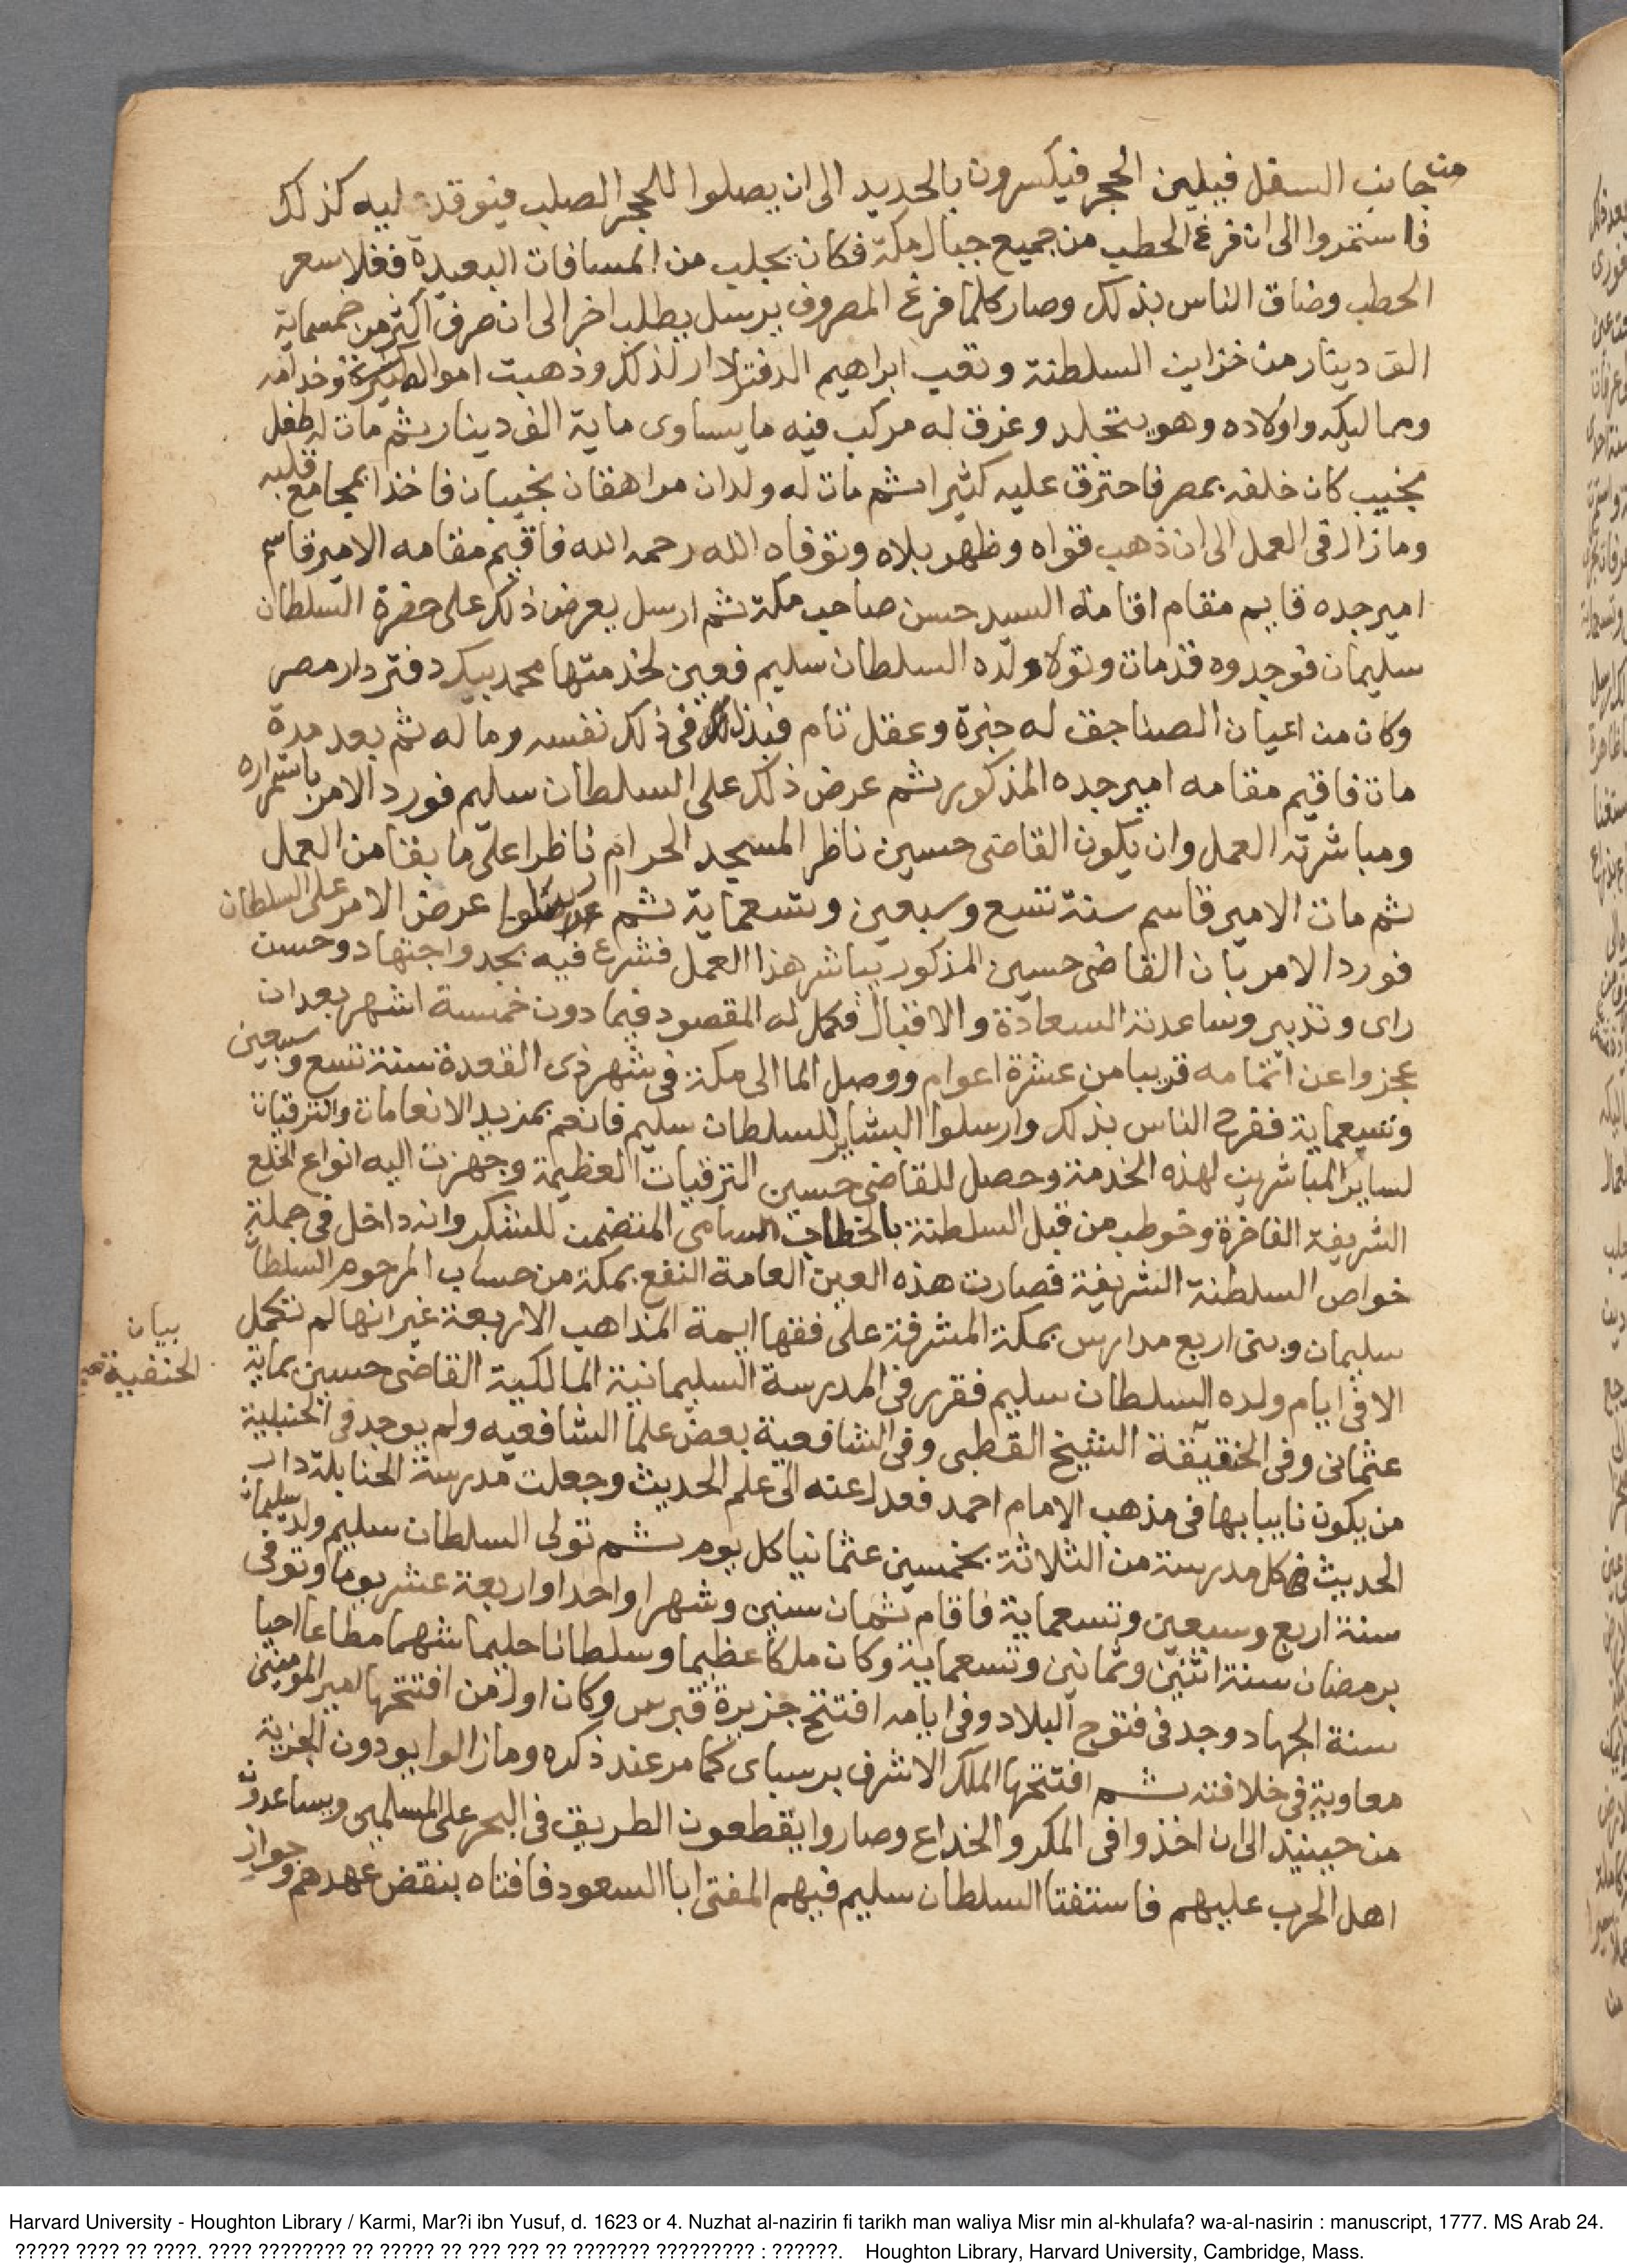 من جانب السفل فيلين الحجر فيكسرون بالحديد الى ان يصلوا للحجر الصلب فيوقد عليه كذلك
فاستمروا الى ان فرغ الحطب من جميع جبال مكة فكان يجلب من المسافات البعيدة فغلا سعر
الحطب وضاق الناس بذلك وصار كلما فرغ المصروف يرسل يطلب اخر الى ان صرف اكثر من خمسماية
الف دينار من خزاين السلطنة وتعب ابراهيم الدفتردار لذلك وذهبت امواله كثيرة وخدامه
ومماليكه واولاده وهو يتجلد وغرق له مركب فيه ما يساوى ماية الف دينار ثم مات له طفل
نجيب كان خلفه بمصر فاحترق عليه كثيرا ثم مات له ولدان مراهقان نجيبان فاخذا بمجامع قلبه
وما زال فى العمل الى ان ذهب قواه وظهر بلاه وتوفاه الله رحمه الله فاقيم مقامه الامير قاسم
امير جده قايم مقام اقامه السيد حسن صاحب مكة ثم ارسل يعرض ذلك على حضرة السلطان
سليمان فوجدوه قد مات وتولا ولده السلطان سليم فعين لخدمتها محمد بيك دفتردار مصر
وكان من اعيان الصناجق له خبرة وعقل تام فبذل فى ذلك نفسه وماله ثم بعد مدة
مات فاقيم مقامه امير جده المذكور ثم عرض ذلك على السلطان سليم فورد الامر باستمراره
ومباشرته العمل وان يكون القاضى حسين ناظر المسجد الحرام ناظرا على ما بقا من العمل
ثم مات الامير قاسم سنة تسع وسبعين وتسعماية ثم ارسلوا عرض الامر على السلطان
فورد الامر بان القاضى حسين المذكور يباشر هذا العمل فشرع فيه بجد واجتهاد وحسن
راى وتدبير وساعدته السعادة والاقبال فكمل له المقصود فيما دون خمسة اشهر بعد ان
عجزوا عن اتمامه قريبا من عشرة اعوام ووصل الما الى مكة فى شهر ذى القعدة سنة تسع وسبعين
وتسعماية ففرح الناس بذلك وارسلوا البشاير للسلطان سليم فانعم بمزيد الانعامات والترقيات
لساير المباشرين لهذه الخدمة وحصل للقاضى حسين الترقيات العظيمة وجهزت اليه انواع الخلع
الشريفة الفاخرة وخوطب من قبل السلطنة بالخطاب السامى المتضمن للشكر وانه داخل فى جملة
خواص السلطنة الشريفة فصارت هذه العين العامة النفع بمكة من حساب المرحوم السلطان
سليمان وبنى اربع مدارس بمكة المشرفة على فقها ايمة المذاهب الاربعة غير انها لم تكمل
الا فى ايام ولده السلطان سليم فقرر فى المدرسة السليمانية المالكية القاضى حسين بماية
عثمانى وفى الحنفية الشيخ القطبى وفى الشافعية بعض علما الشافعيه ولم يوجد فى الحنبلية
بيان
الحنفية
من يكون نايبا بها فى مذهب الامام احمد فعد اعته الى علم الحديث وجعلت مدرسة الحنابلة دار
الحديث كل مدرسة من الثلاثة بخمسين عثمانيا كل يوم ثم تولى السلطان سليم ولد سليمان
سنة اربع وسبعين وتسعماية فاقام ثمان سنين وشهرا واحدا واربعة عشر يوما وتوفى
برمضان سنة اثنين وثمانين وتسعماية وكان ملكا عظيما وسلطانا حليما شهما مطاعا احيا
سنة الجهاد وجد فى فتوح البلاد وفى ايامه افتتح جزيرة قبرس وكان اول من افتتحها امير المومنين
معاوية فى خلافته ثم افتتحها الملك الاشرف برسباى كما مر عند ذكره وما زالوا يودون الجزية
من حينيذ الى ان اخذوا فى المكر والخداع وصاروا يقطعون الطريق فى البحر على المسلمين ويساعدون
اهل الحرب عليهم فاستفتا السلطان سليم فيهم المفتى ابا السعود فافتاه بنقض عهدهم وجواز
Harvard University - Houghton Library / Karmi, Mar?i ibn Yusuf, d. 1623 or 4. Nuzhat al-nazirin fi tarikh man waliya Misr min al-khulafa? wa-al-nasirin : manuscript, 1777. MS Arab 24.
????? ???? ?? ????. ???? ???????? ?? ????? ?? ??? ??? ?? ??????? ????????? : ??????. Houghton Library, Harvard University, Cambridge, Mass.